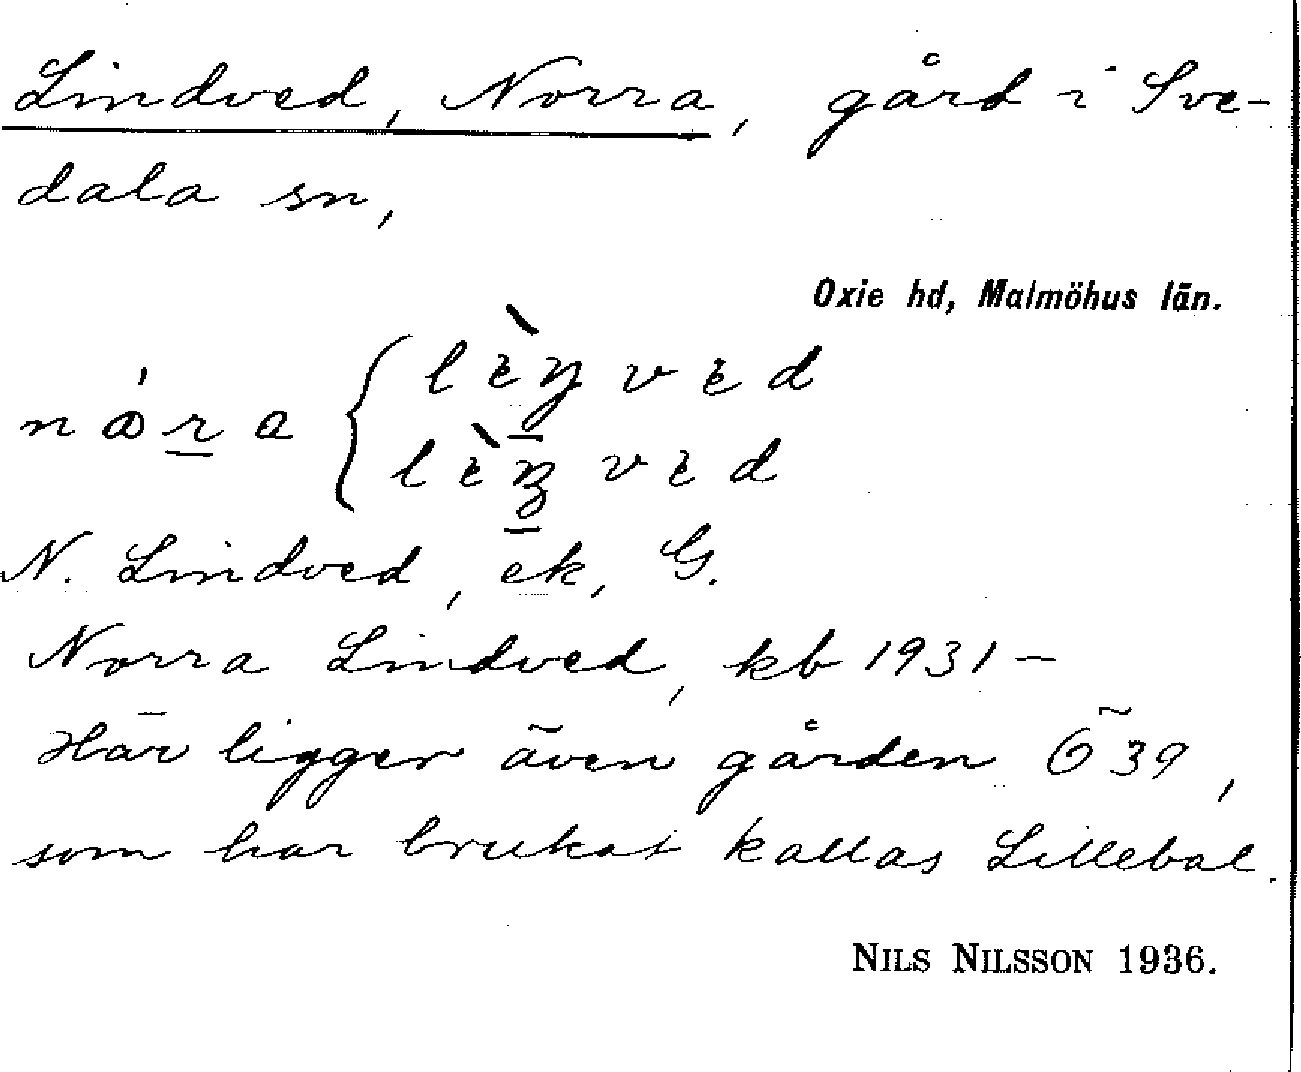 Lindved, Norra, gård i Sve-
dala sn,
Oxie hd, Malmöhus län.
N. Lindved, ek, G.
Norra Lindved, kb 1931 –
Här ligger även gården Ö 39,
som har brukat kallas Lillebal.
NILS NILSSON 1936.